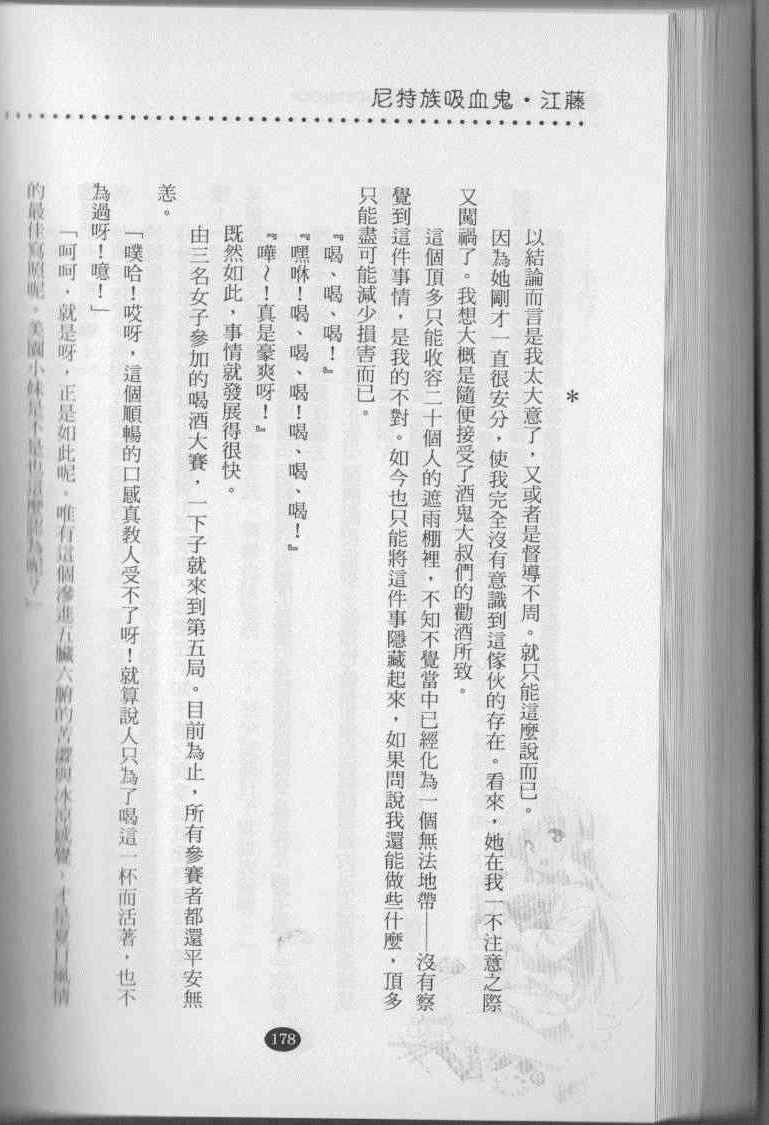 尼特族吸血鬼・江藤
＊
以結論而言是我太大意了，又或者是督導不周。就只能這麼說而已。
因為她剛才一直很安分，使我完全沒有意識到這傢伙的存在。看來，她在我一不注意之際
又闖禍了。我想大概是隨便接受了酒鬼大叔們的勸酒所致。
這個頂多只能收容二十個人的遮雨棚裡，不知不覺當中已經化為一個無法地帶——沒有察
覺到這件事情，是我的不對。如今也只能將這件事隱藏起來，如果問說我還能做些什麼，頂多
只能盡可能減少損害而已。
『喝、喝、喝！』
『嘿咻！喝、喝、喝！喝、喝、喝！』
『嘩～！真是豪爽呀！』
既然如此，事情就發展得很快。
由三名女子參加的喝酒大賽，一下子就來到第五局。目前為止，所有參賽者都還平安無
恙。
「噗哈！哎呀，這個順暢的口感真教人受不了呀！就算說人只為了喝這一杯而活著，也不
為過呀！噫！」
「呵呵，就是呀，正是如此呢。唯有這個滲進五臟六腑的苦澀與冰涼感覺，才是夏日風情
的最佳寫照呢。美園小妹是不是也這麼認為呢？」
178